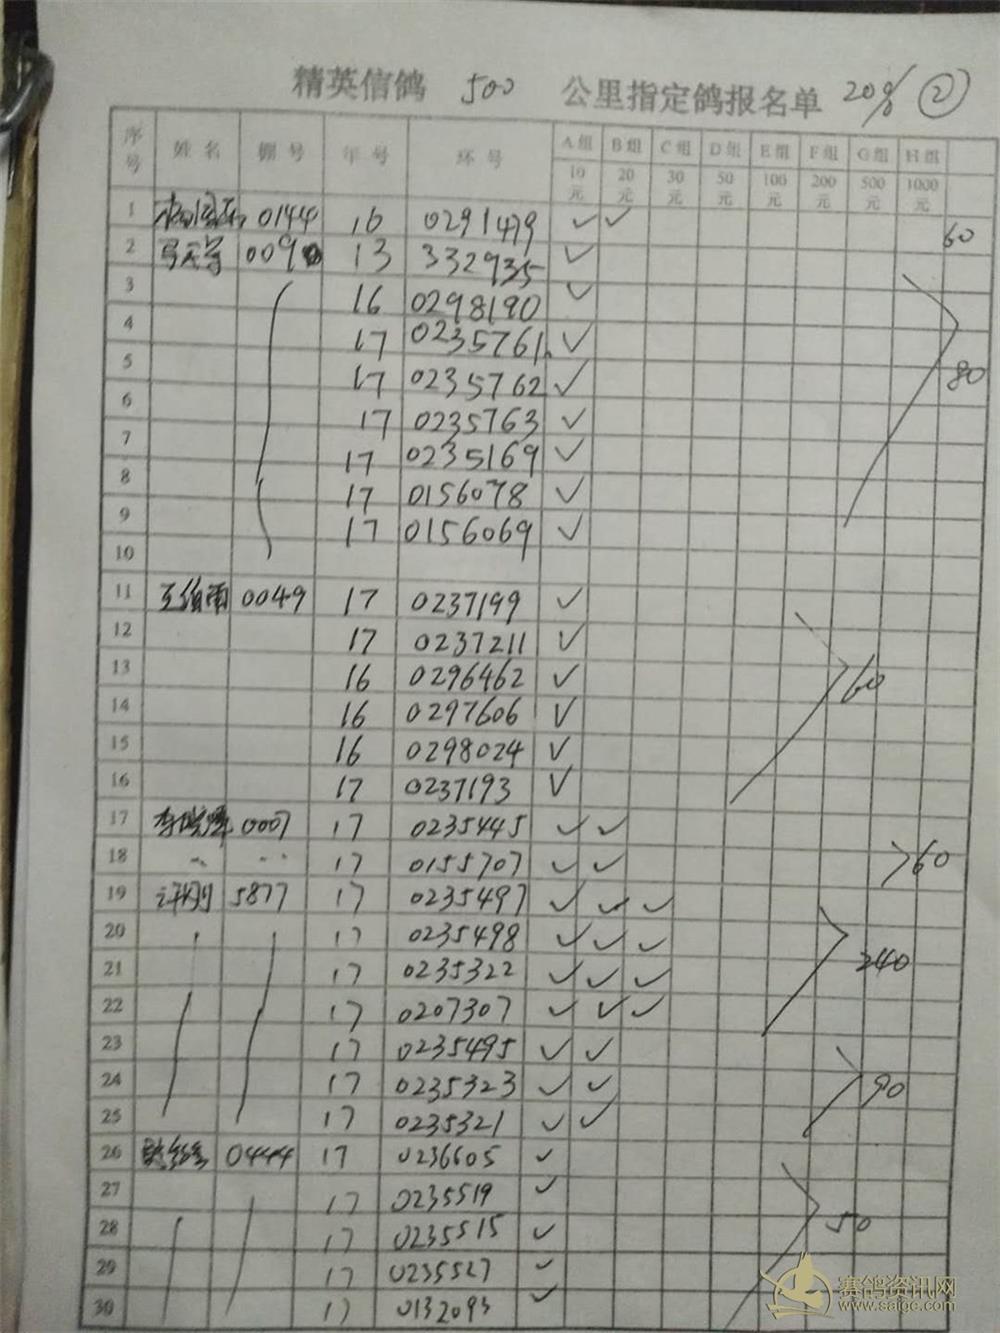 精英信鸽 500 公里指定鸽报名单 20% ②
序号 姓名 棚号 年号 环号 A组 B组 C组 D组 E组 F组 G组 H组
10元 20元 30元 50元 100元 200元 500元 1000元
1 0144 16 0291479 ✓ ✓ 60
2 13 332935 ✓
3 16 0298190 ✓
4 17 0235761 ✓
5 17 0235762 ✓ 80
6 17 0235763 ✓
7 17 0235169 ✓
8 17 0156078 ✓
9 17 0156069 ✓
10
11 0049 17 0237199 ✓
12 17 0237211 ✓
13 16 0296462 ✓ 60
14 16 0297606 ✓
15 16 0298024 ✓
16 17 0237193 ✓
17 0007 17 0235445 ✓ ✓
18 17 0155707 ✓ ✓ 60
19 许刚 5877 17 0235497 ✓ ✓ ✓
20 17 0235498 ✓ ✓ ✓
21 17 0235322 ✓ ✓ ✓ 240
22 17 0207307 ✓ ✓ ✓
23 17 0235495 ✓ ✓
24 17 0235323 ✓ ✓ 90
25 17 0235321 ✓ ✓
26 0444 17 0236605 ✓
27 17 0235519 ✓
28 17 0235515 ✓ 50
29 17 0235527 ✓
30 17 0132093 ✓
赛鸽资讯网
www.saigc.com